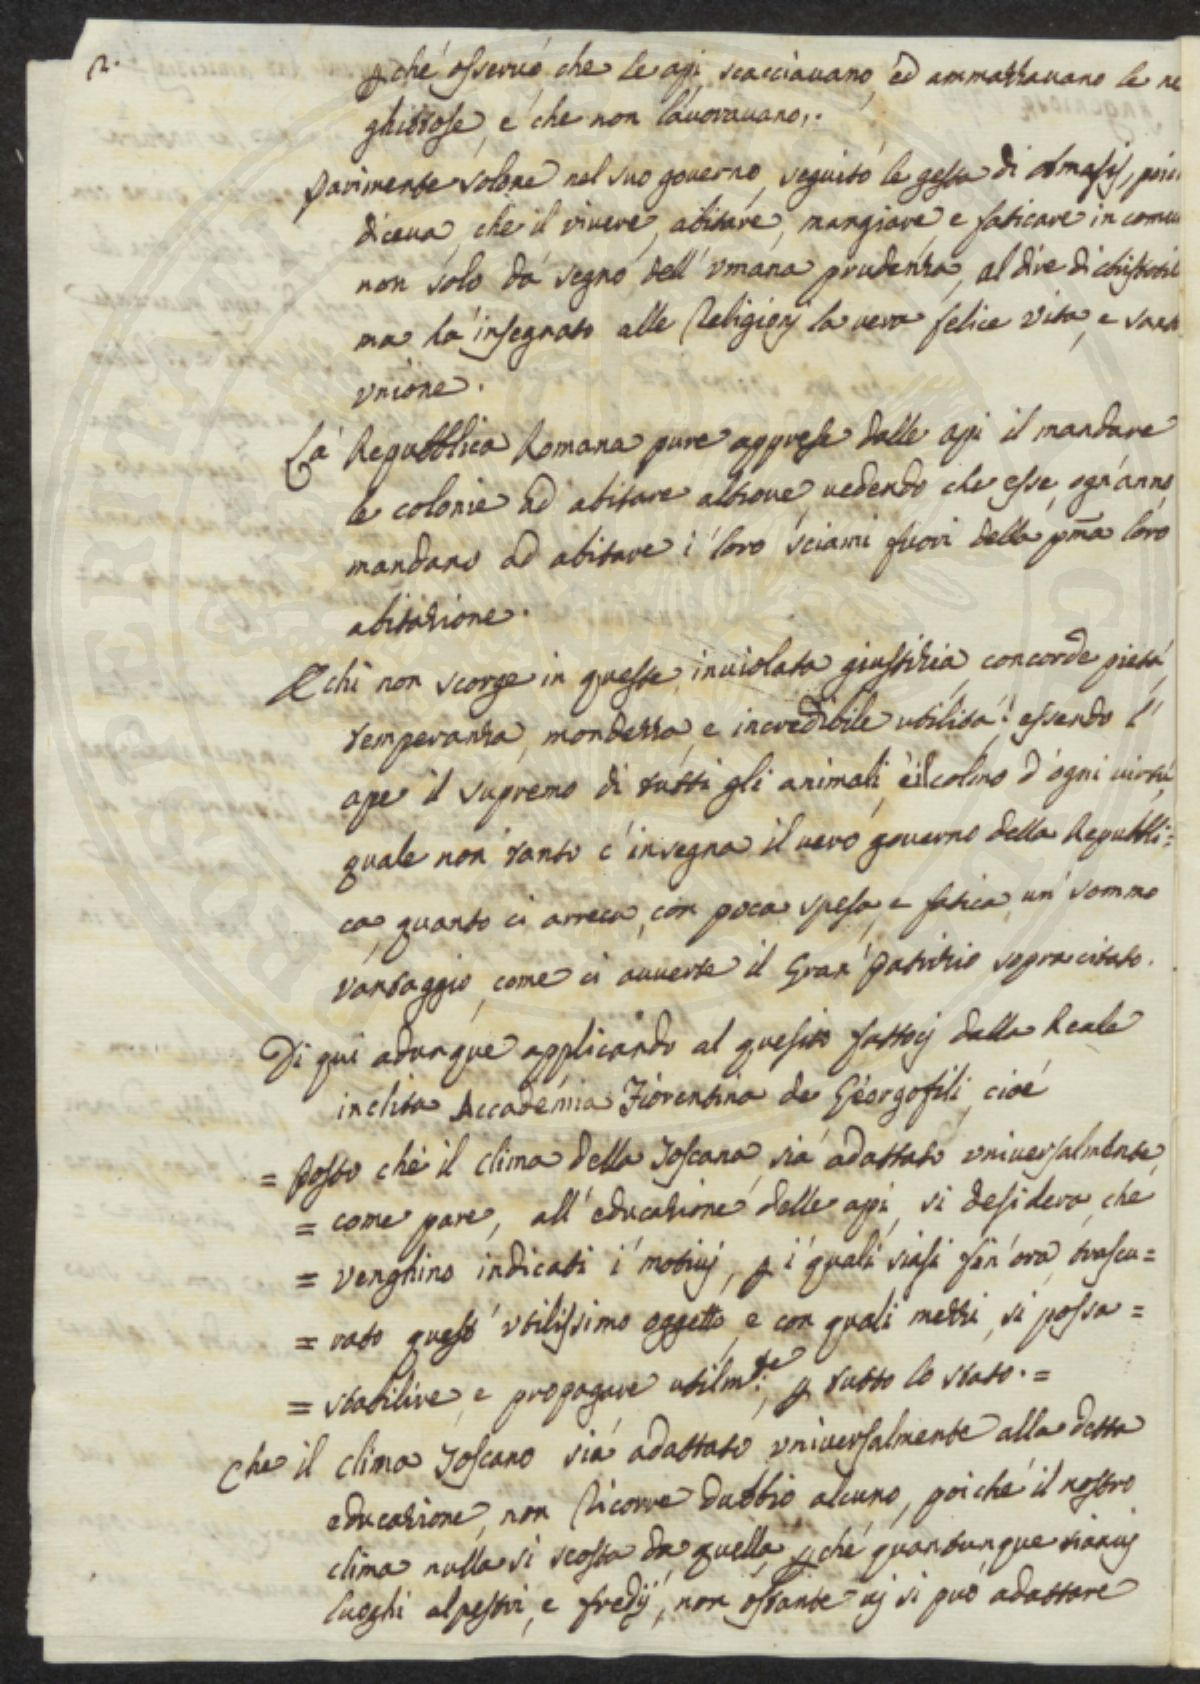 2.
p ché osservó, che le api scacciavano, ed ammazzavano le ne
ghittose, e che non lavoravano,.
Parimente Solone nel suo governo, seguitó le gesta di Amasis, poic
diceva, che il vivere, abitare, mangiare e faticare in comu
non solo dá segno dell' Vmana prudenza, al dire di
ma há insegnato alle Religionj la vera felice vita, e
vnione.
La Repubblica Romana pure apprese dalle api il mandare
le colonie ad abitare altrove, vedendo che esse, ogn'anno
mandano ad abitare i loro sciami fuori della pma loro
abitazione.
E chi non scorge in queste, inviolata giustizia, concorde pietá,
temperanza, mondezza, e incredibile utilitá! essendo l'
ape il supremo di tutti gli animali, é il colmo d'ogni virtú,
quale non tanto c'insegna il vero governo della Repubbli=
ca, quanto ci arreca, con poca spesa, e fatica, un' sommo
vantaggio, come ci avverte il Gran' Patrizio sopracitato.
Di qui adunque applicando al quesito fattoci dalla Reale
inclita Accademia Fiorentina de Georgofili, cioé
= Posto ché il clima della Toscana, sia adattato vniversalmente,
= come pare, all' educazione delle api, si desidera, che
= venghino indicati i motivj, p i quali siasi fin'ora trascu=
= rato questo vtilissimo oggetto, e con quali mezzi, si possa =
= stabilire, e propagare utilm:te, p tutto lo stato. =
Che il clima Toscano sia adattato vniversalmente alla detta
educazione, non Ricorre dubbio alcuno, poiché il nostro
clima nulla si scosta da quella, p ché quantunque sianvj
luoghi alpestri, e fredij, non ostante vj si puó adattare